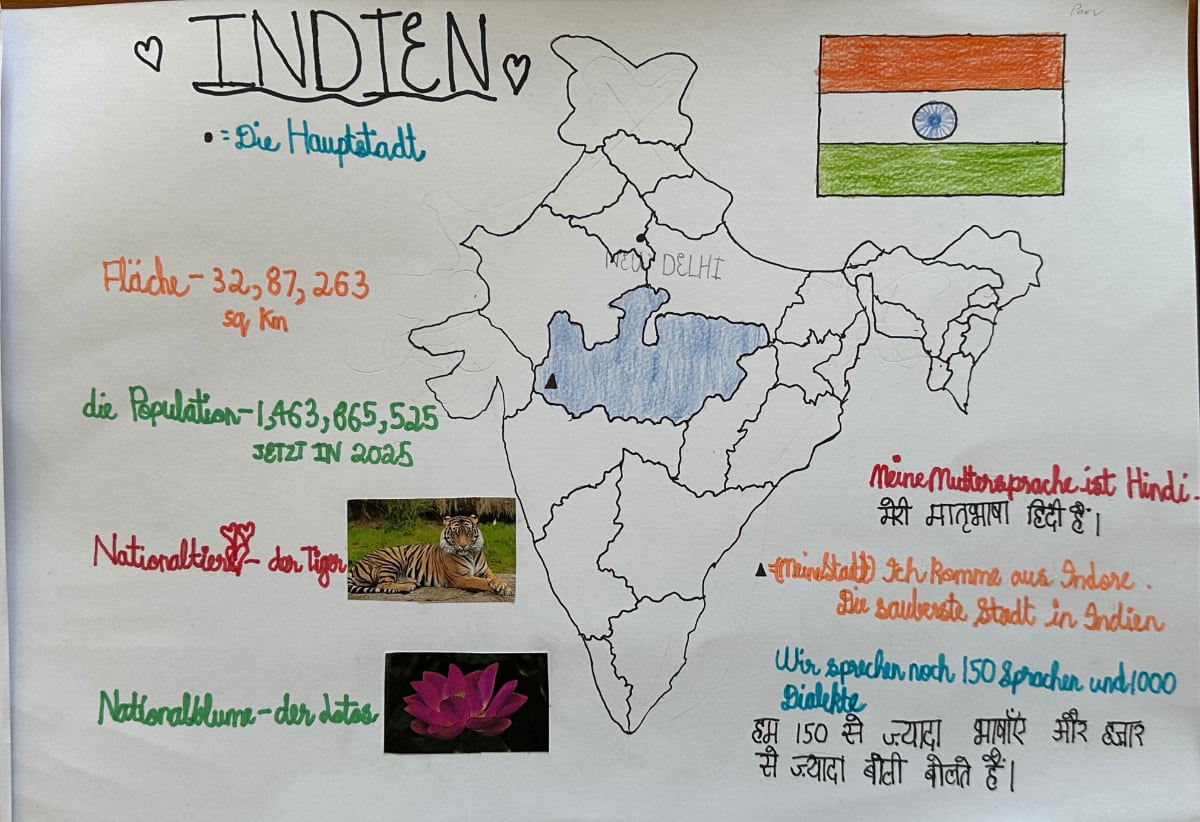 Parv
INDIEN
• = Die Hauptstadt
NEW DELHI
Fläche - 32,87,263
sq Km
die Population - 1,463,865,525
JETZT IN 2025
Nationaltier - der Tiger
Nationalblume - der Lotos
Meine Muttersprache ist Hindi.
मेरी मातृभाषा हिंदी हैं।
▲ = (meine Stadt) Ich komme aus Indore.
Die sauberste Stadt in Indien
Wir sprechen noch 150 Sprachen und 1000
Dialekte
हम 150 से ज़्यादा भाषाएँ और हज़ार
से ज़्यादा बोली बोलते हैं।